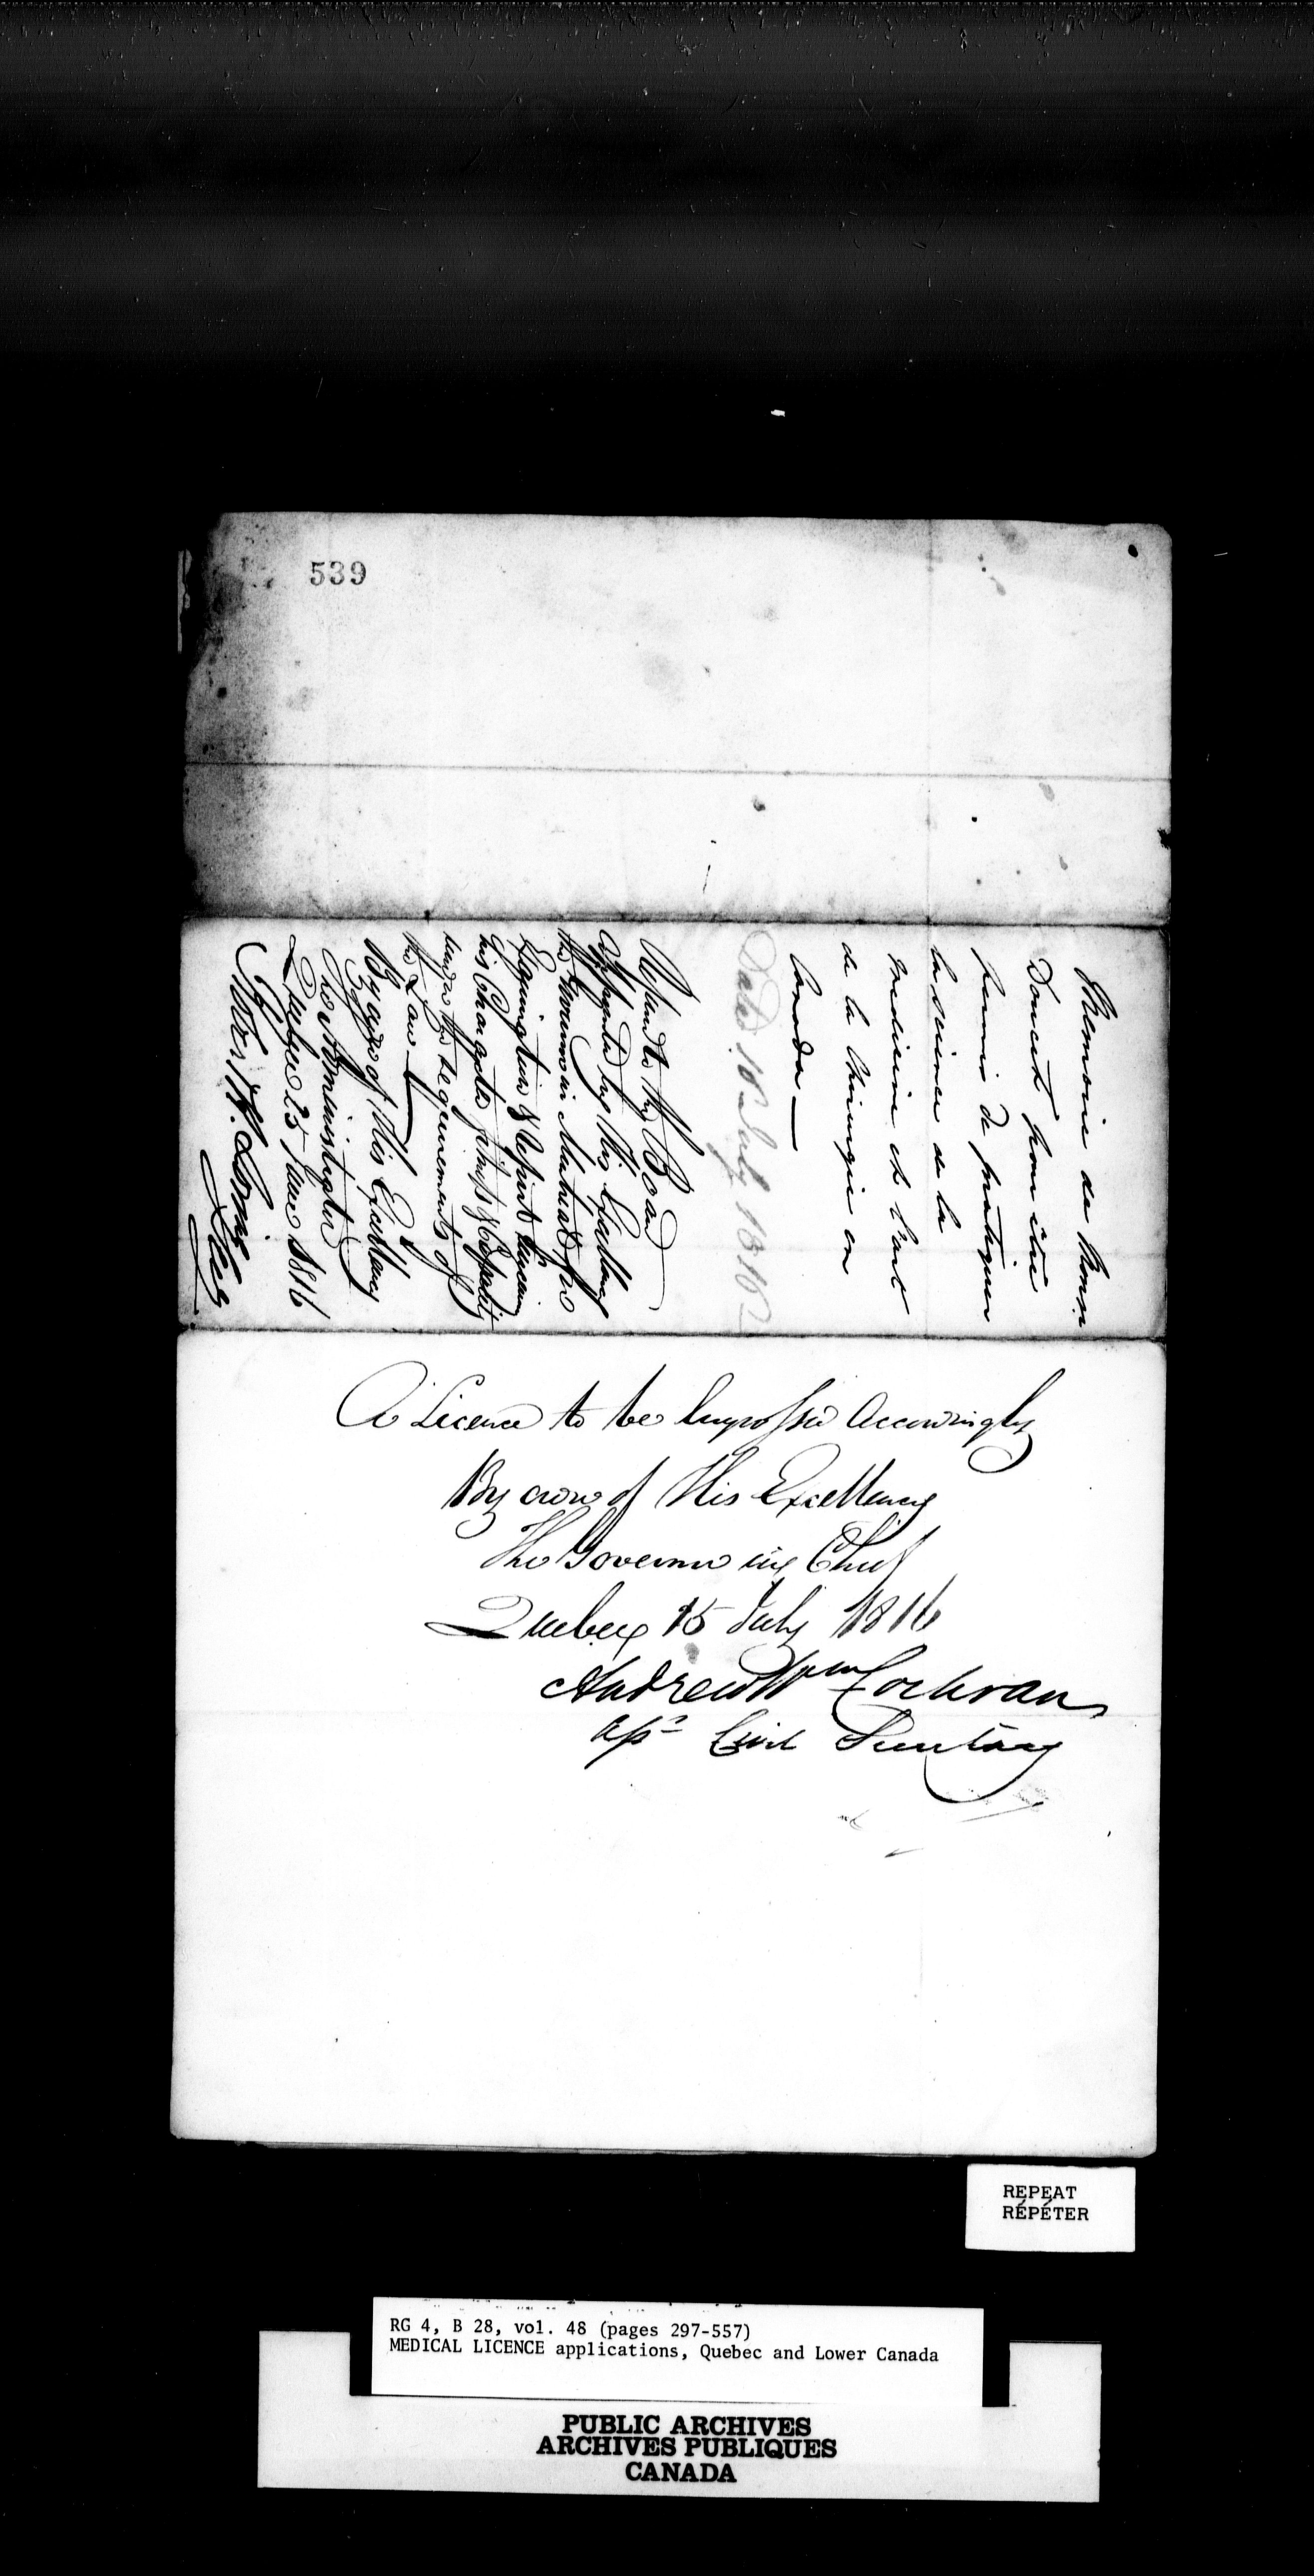 539
Memoire de Mons.r
Doucet pour être
permis de pratiquer
la science de la
medicine et l'art
de la Chirurgie en
Canada —
Dated 10 July 1816
to the Board
appointed by His Excellency
the Governor in Montreal for
Examination & Report
his Character fitness & Capacity
under the requirements of
the Law —
By order of His Excellency
the Administrator
Quebec 25 June 1816
Secy
A Licence to be Engrossed Accordingly
By order of His Excellency
The Governor in Chief
Quebec 15 July 1816
Andrew Wm Cochran
Asst Civil Secretary
REPEAT
RÉPÉTER
RG 4, B 28, vol. 48 (pages 297-557)
MEDICAL LICENCE applications, Quebec and Lower Canada
PUBLIC ARCHIVES
ARCHIVES PUBLIQUES
CANADA